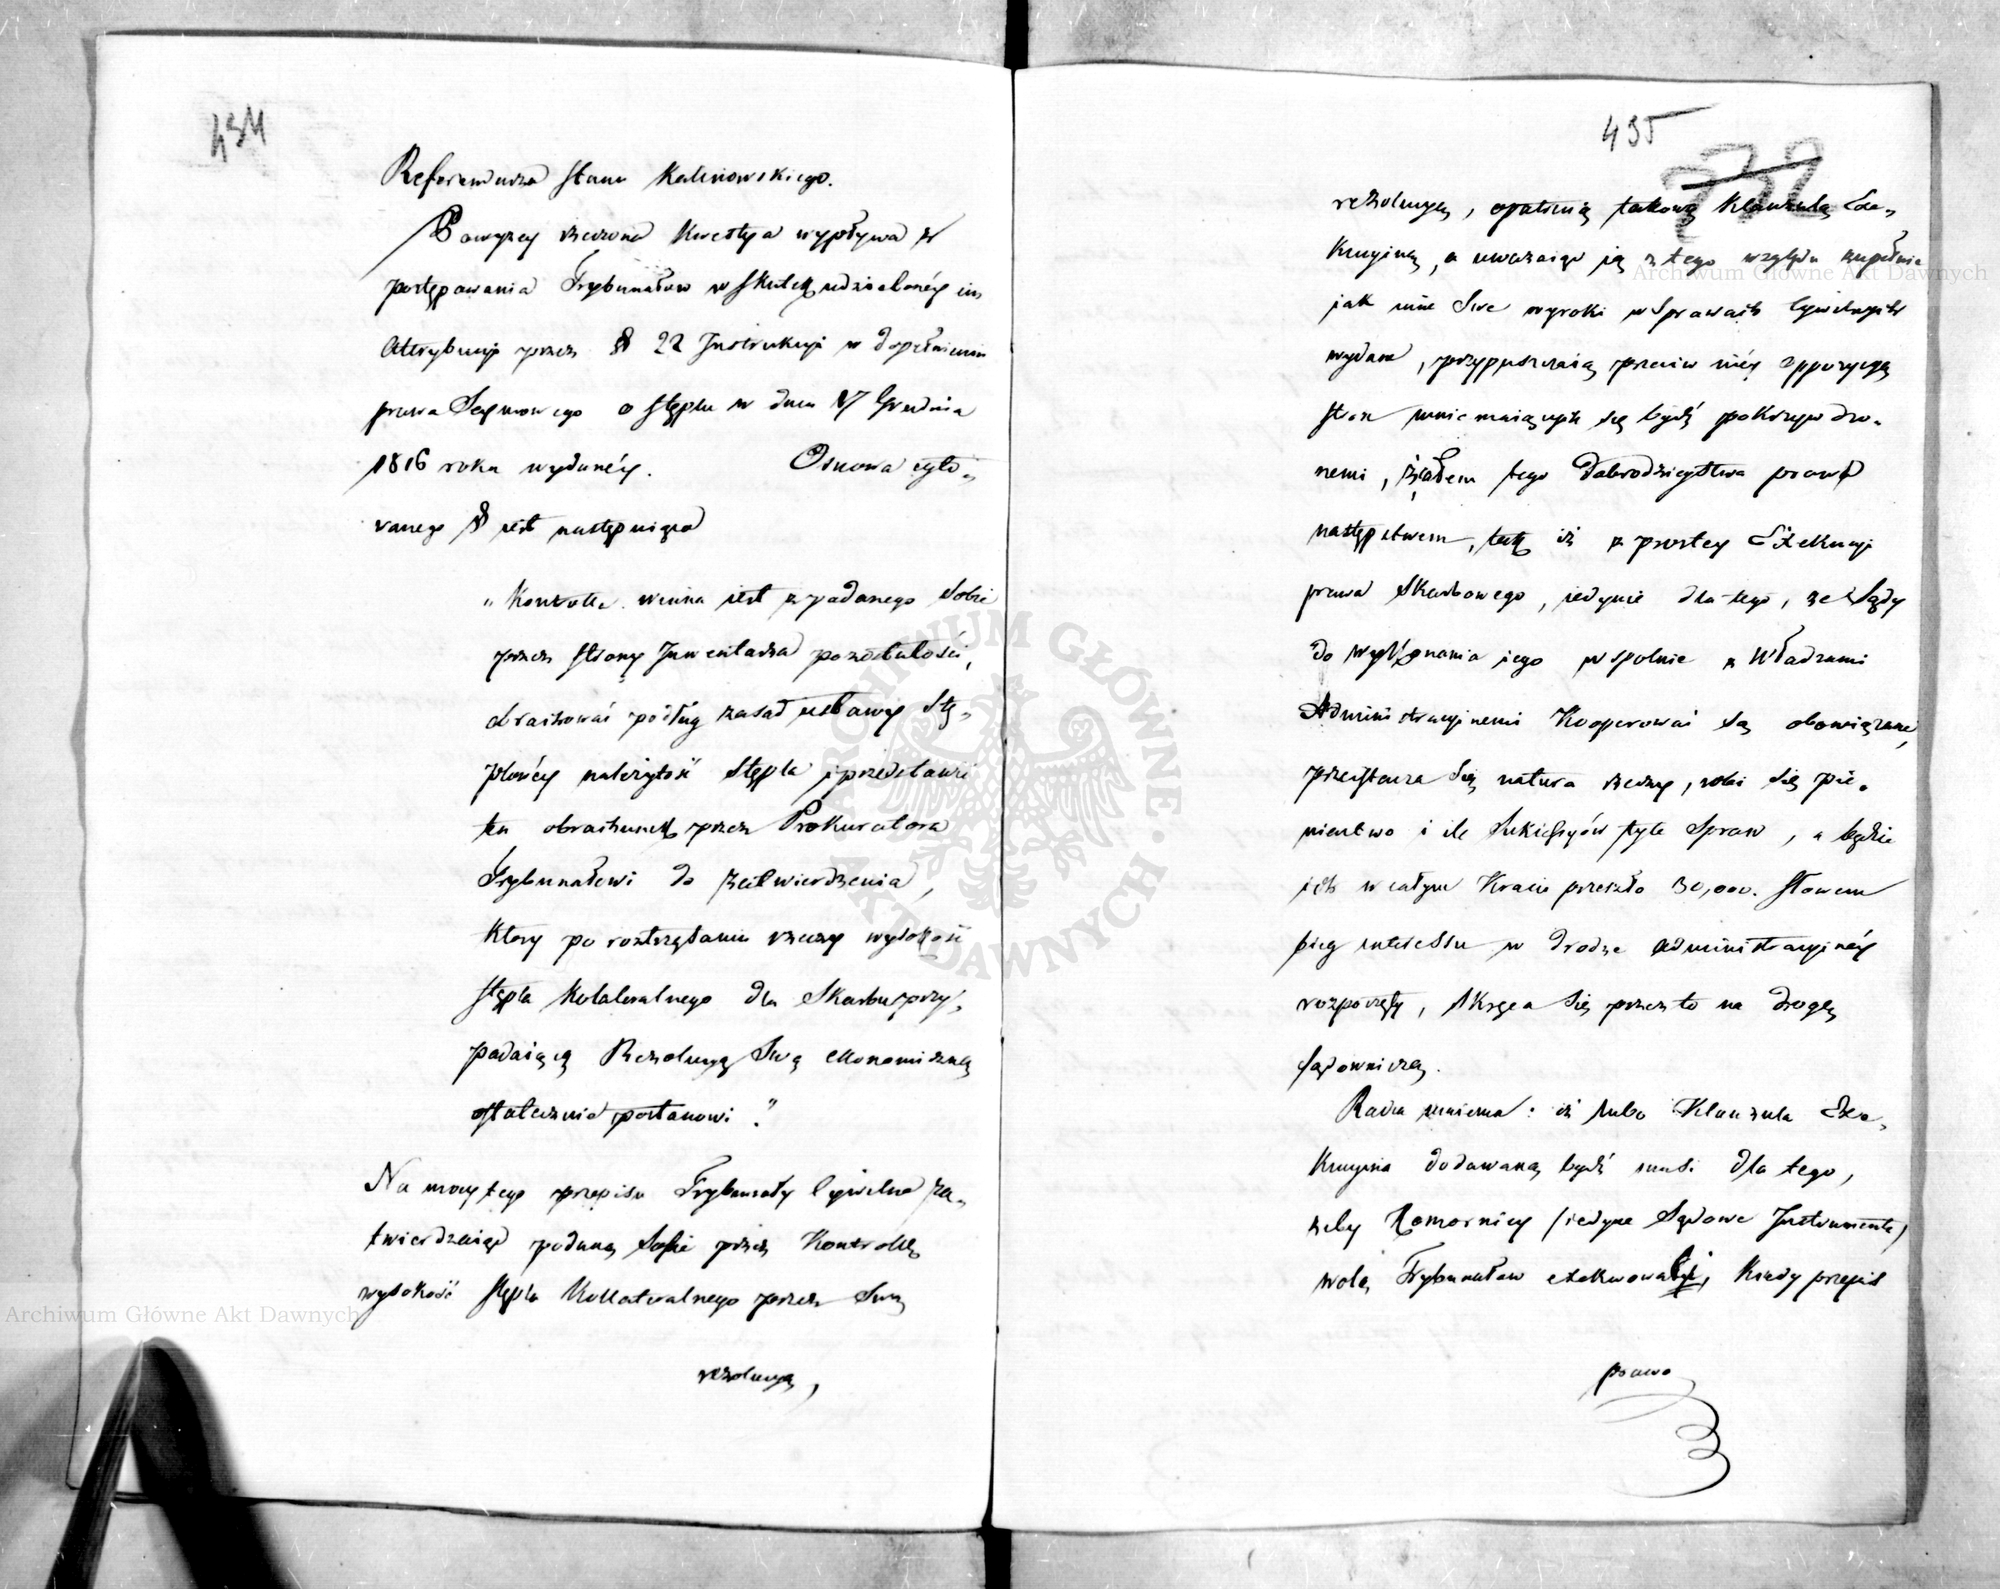 434
Referendarza Stanu Kalinowskiego.
Powyżey rzeczona Kwestya wypływa z
postępowania Trybunałow w skutek udzielonéy im
Attrybucyi przez § 22 Instrukcyi w dopełnieniu
prawa Seymowego o stęplu w dniu 17 Grudnia
1816 roku wydanéy. Osnowa cyto-
wanego § jest następuiąca
„Kontrolla winna jest z podanego sobie
przez strony Inwentarza pozostałości,
obrachować podług zasad ustawy stę-
plowéy należytość stępla i przedstawi
ten obrachunek przez Prokuratora
Trybunałowi do zatwierdzenia,
Ktory po roztrząśaniu rzeczy wysokość
stępla kolateralnego dla Skarbu przy-
padaiącą Rezolucyą swą ekonomiczną
ostatecznie postanowi."
Na mocy tego przepisu Trybunały Cywilne za-
twierdzaiąc podaną sobie przez Kontrollę
wysokość stępla Kollateralnego przez swą
rezolucyą,
435
732
rezolucyą, opatruią takową Klauzulą Exe-
Kucyiną, a uważaiąc ją z tego względu zupełnie
jak inne swe wyroki w sprawach Cywilnych
wydane, przypuszczaią przeciw niéy oppozycyą
stron mniemaiących się bydź pokrzywdzo-
nemi, tego Dobrodzieystwa prawa
następstwem, iż z prostey Exekucyi
prawa Skarbowego, jedynie dla tego, że Sądy
do wykonania jego wspolnie z Władzami
Administracyinemi Kooperować są obowiązane,
przeistacza się natura rzeczy, robi się pie-
niactwo i ile Sukcessyów tyle spraw, a będzie
ich w całym Kraiu przeszło 30,000. Słowem
bieg interessu w drodze administracyinéy
rozpoczęty, skręca się przez to na drogę
sądowniczą.
Rada mniema: iż lubo Klauzula Exe-
Kucyina dodawaną bydź musi dla tego,
zeby Komornicy (jedyne Sądowe Instrumenta)
wolę Trybunałow exekwowali, Kiedy przepis
prawa
Archiwum Główne Akt Dawnych
Archiwum Główne Akt Dawnych
ARCHIWUM GŁÓWNE AKT DAWNYCH